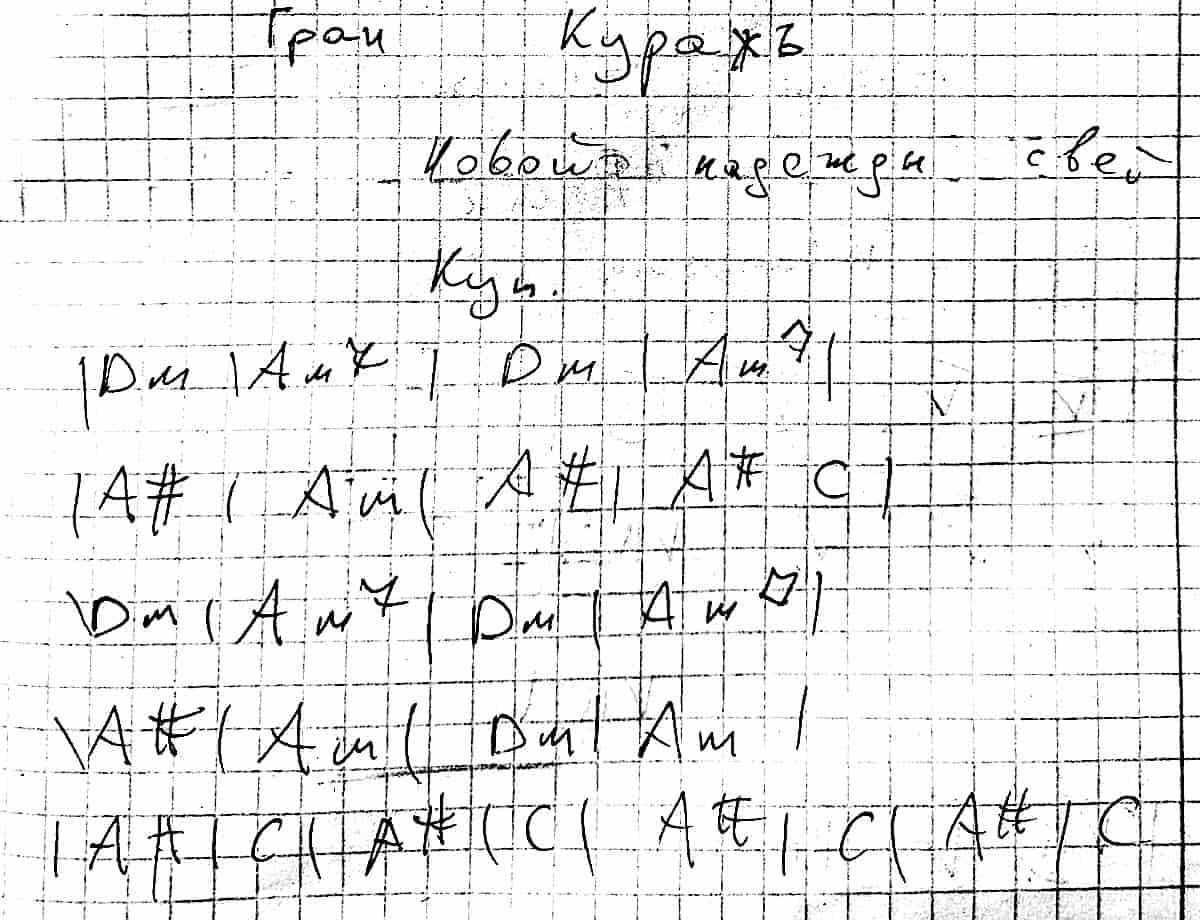 Гран Куражъ
Новой надежды свет
Куп.
|Dm |Am7 | Dm | Am7|
|A# | Am | A# | A# C|
|Dm | Am7 | Dm | Am7|
|A# | Am | Dm | Am |
|A# | C | A# | C | A# | C | A# | C